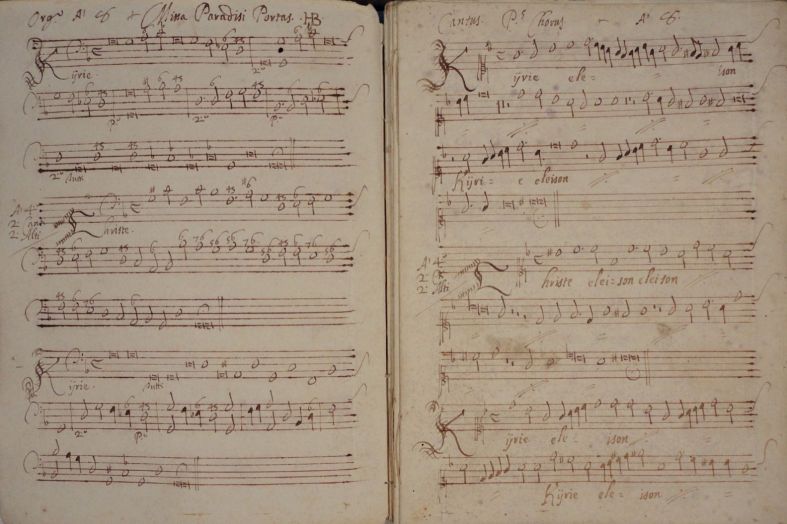 Org.º A 8 + Missa Paradisi Portas. HB
Kyrie.
p.º 2.º p.º
2.º tutti
A 4.
2. Canti
2. Alti
Christe.
Kyrie. tutti
2.º p.º
Cantus. P.s Chorus + A 8.
Kyrie ele= = ison
Kyri= e eleison
A 4.
2. Alti
Christe elei=son eleison
Kyrie ele= ison =
Kyrie ele= ison =